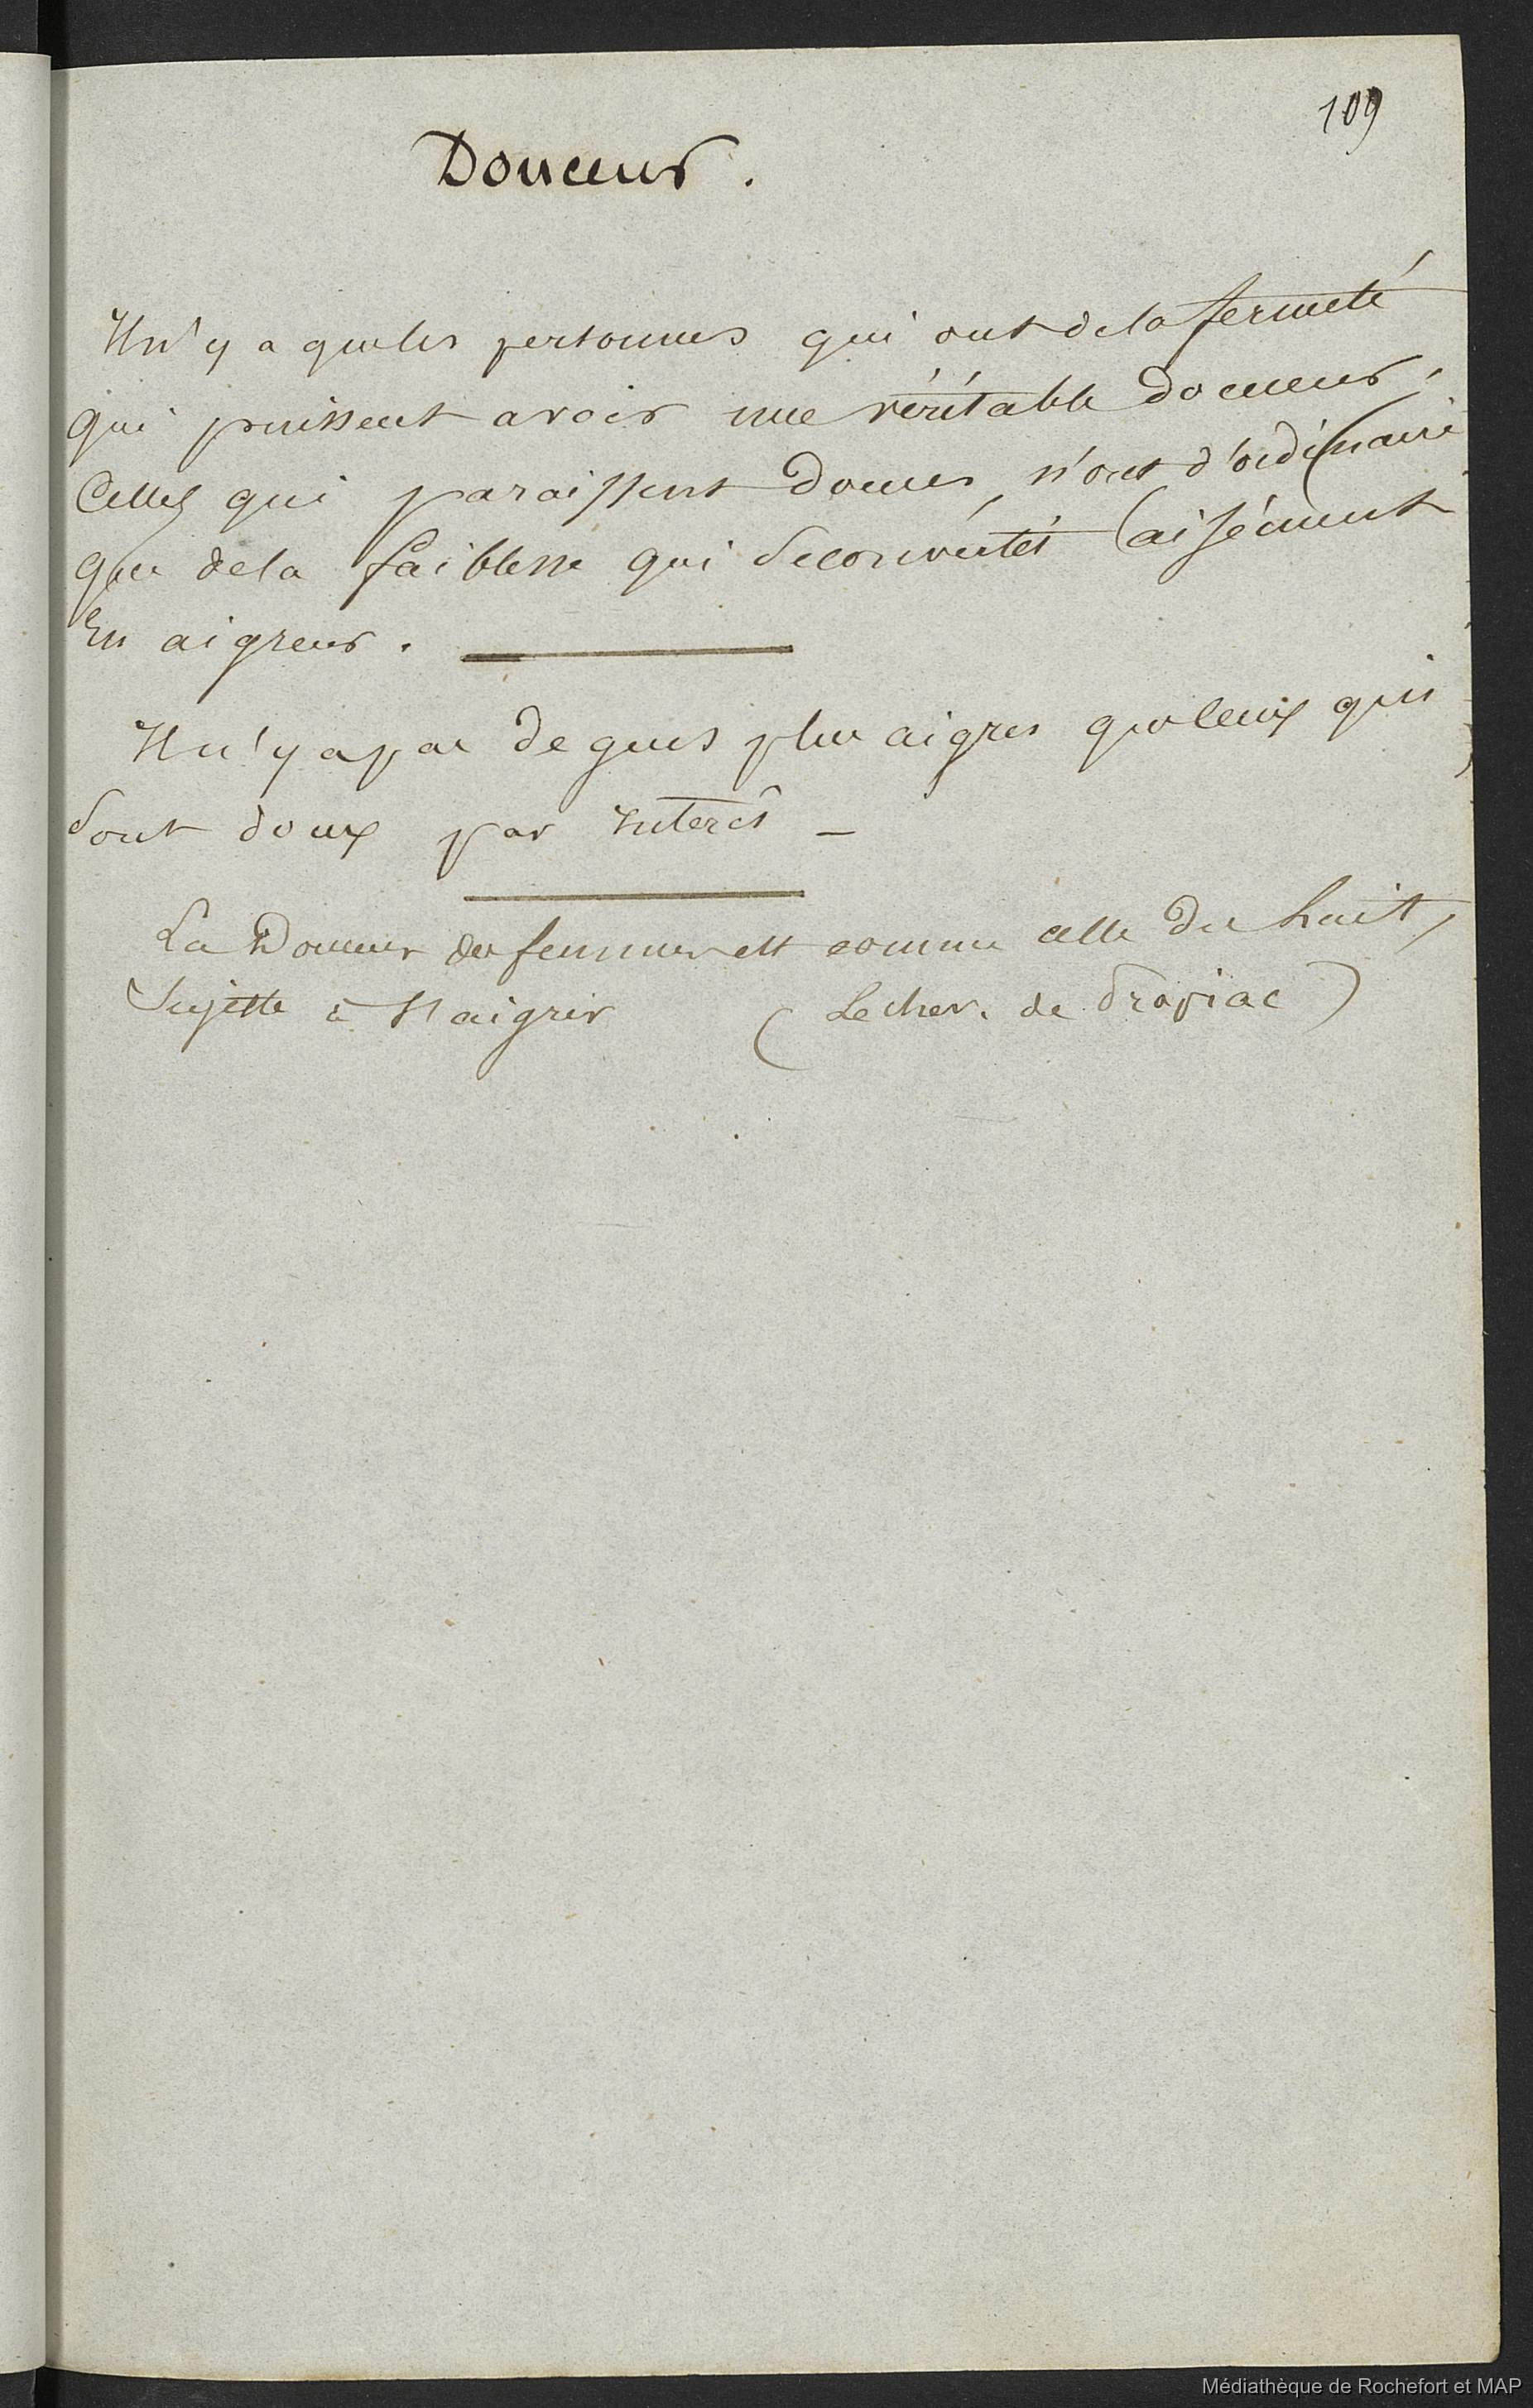 109
Douceur.
Il n'y a que les personnes qui ont de la fermeté
qui puissent avoir une véritable doceur,
Celles qui paraissent douces, n'ont d'ordinaire
que de la faiblesse qui se convertit aisément
En aigreur.
Il n'y a pas de gens plus aigres que ceux qui
sont doux par Interêt _
La Douceur des femmes est comme celle du Lait,
Sujette à s'aigrir (Le chev. de Propiac)
Médiathèque de Rochefort et MAP